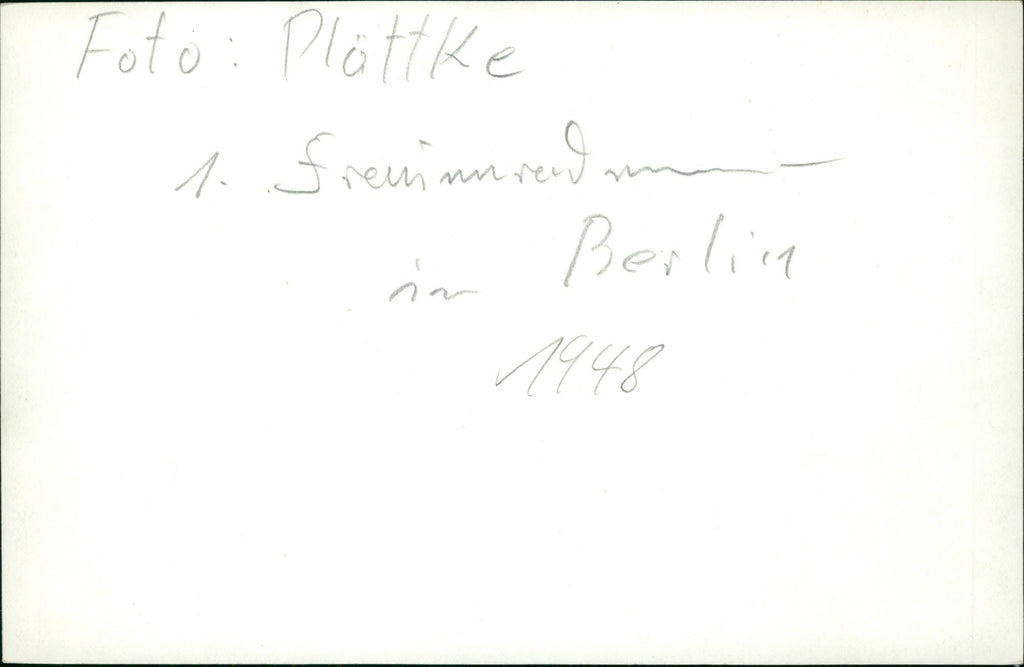 Foto: Plättke
1.
in Berlin
1948